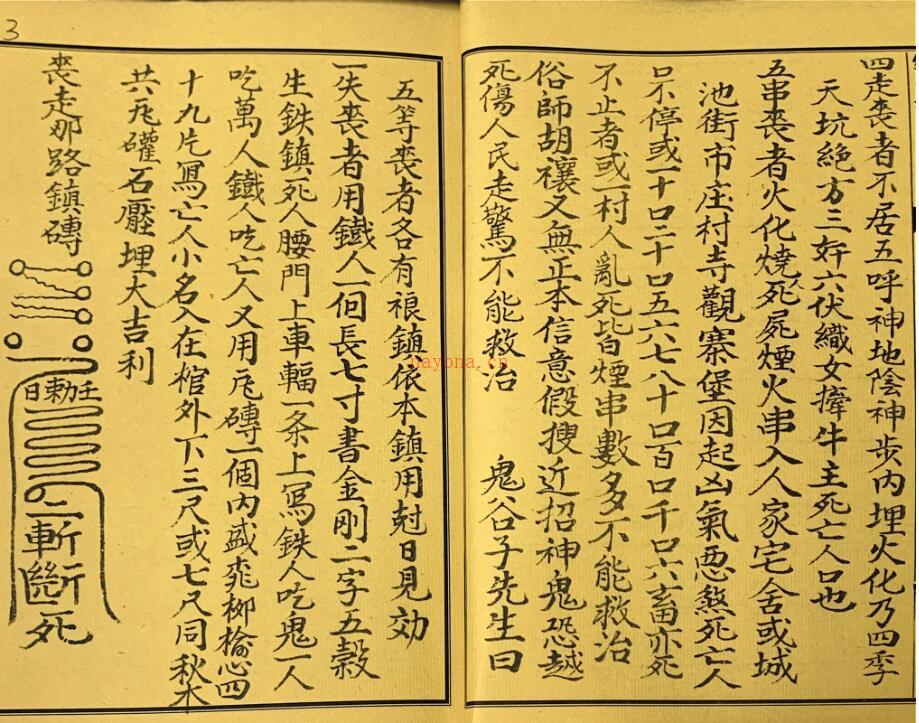 四走喪者不居五呼神地陰神步內埋火化乃四季
天坑絕方三奸六伏織女牽牛主死亡人口也
五串喪者火化燒死人屍煙火串入人家宅舍或城
池街市庄村寺觀寨堡因起凶氣悪煞死亡人
口不停或一十口二十口五六七八十口百口千口六畜亦死
不止者或一村人亂死皆煙串數多不能救治
俗師胡禳又無正本信意假搜近招神鬼恐越
死傷人民走驚不能救治 鬼谷子先生曰
五等喪者各有禳鎮依本鎮用尅日見効
一失喪者用鐵人一個長七寸書金剛二字五穀
生鉄鎮死人腰門上車輻一条上寫鉄人吃鬼一人
吃萬人鐵人吃亡人又用瓦磚一個內盛桃柳榆心四
十九片寫亡人小名入在棺外下三尺或七尺同秋木
共瓦礶石壓埋大吉利
喪走那路鎮磚
日敕壬
二斬斷死
3
nayona.cn